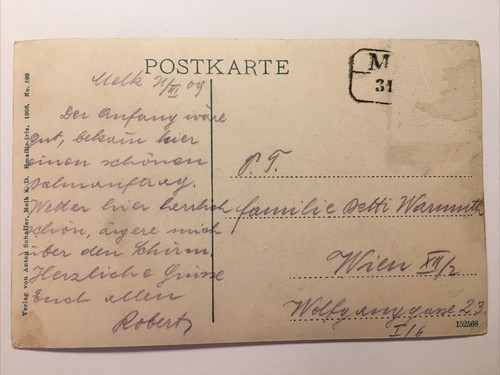 POSTKARTE
M
31
Melk 31/III 09
Der Anfang wäre
gut, bekam hier
einen schönen
Wetter hier herrlich
schön, ärgere mich
über den Schirm.
Herzliche Grüsse
Euch allen
Robert
P. T.
Familie Warmuth
Wien XII/2
Wolfganggasse 23.
I/6
Verlag von Anton Schaller, Melk a. D. 1908. No. 189
152568